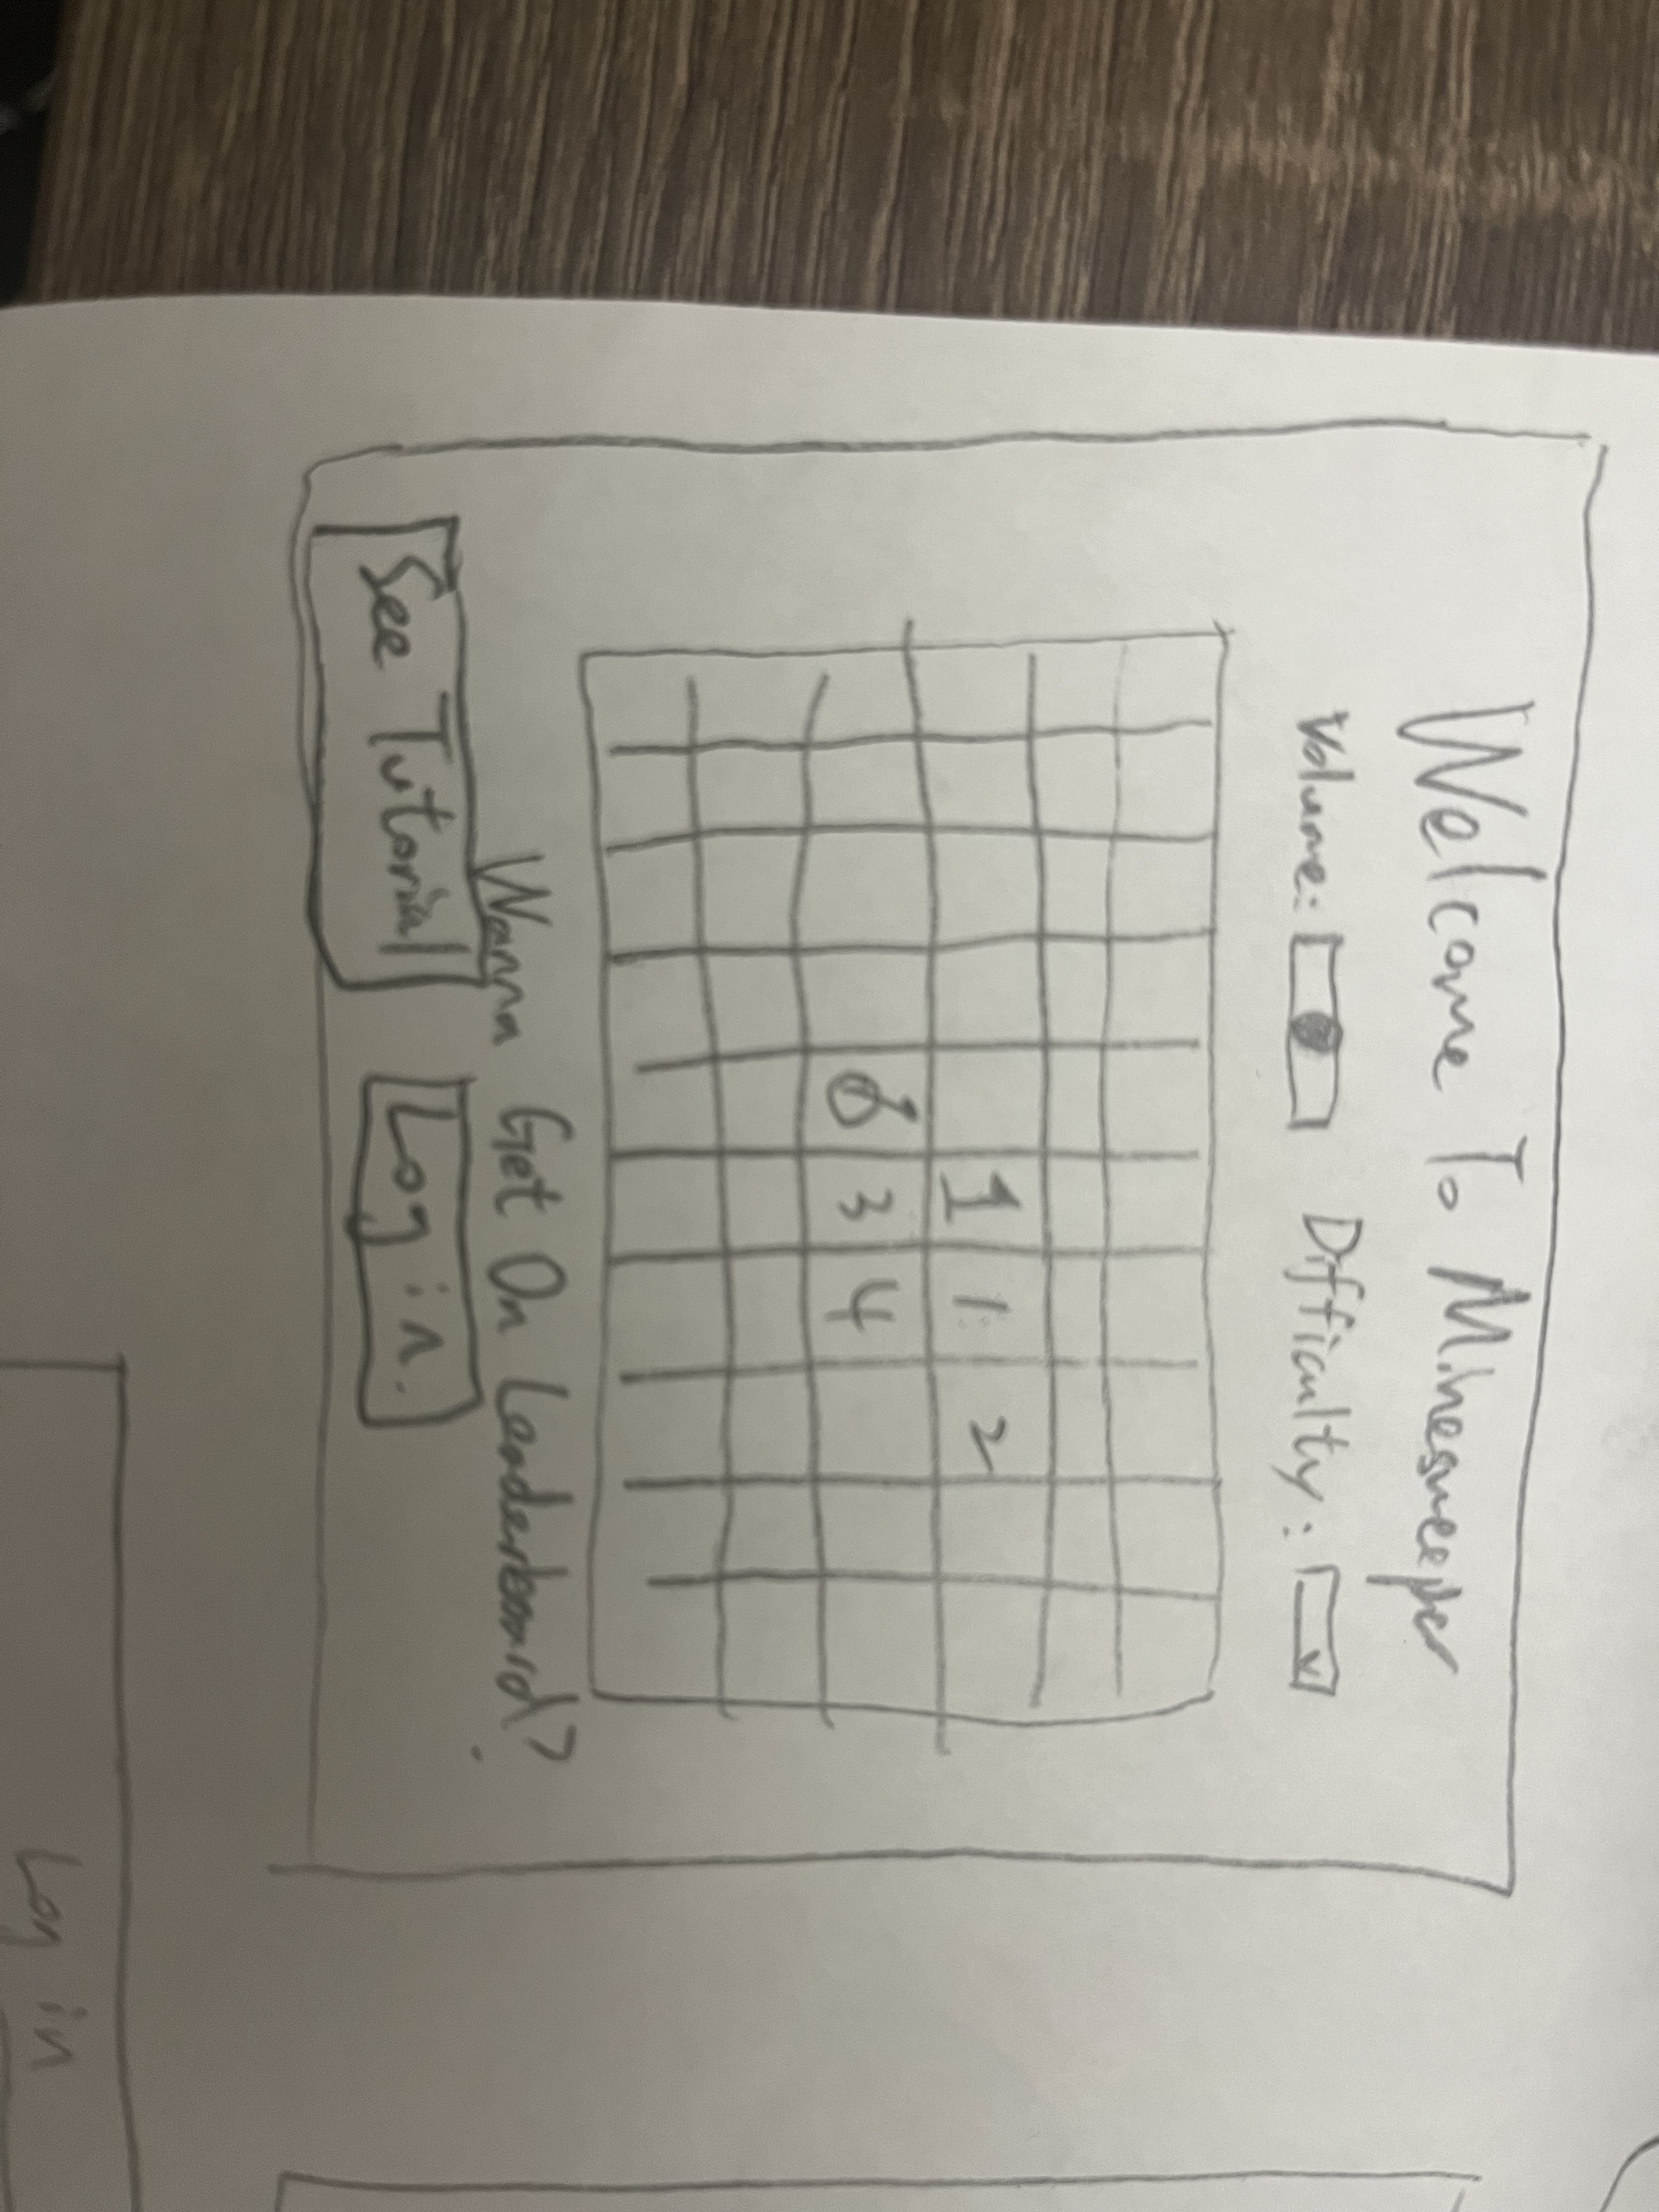 Welcome To Minesweeper
Volume: Difficulty: v
1 1 2
3 4
Wanna Get On Leaderboard?
See Tutorial Log in.
Log in